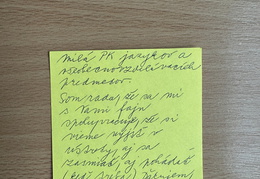 Milá PK jazykov a
všeobecnovzdelávacích
predmetov.
Som rada, že sa mi
s Vami fajn
spolupracuje, že si
vieme vyjsť v
ústrety, aj sa
zasmiať, aj pohádať
(keď treba)